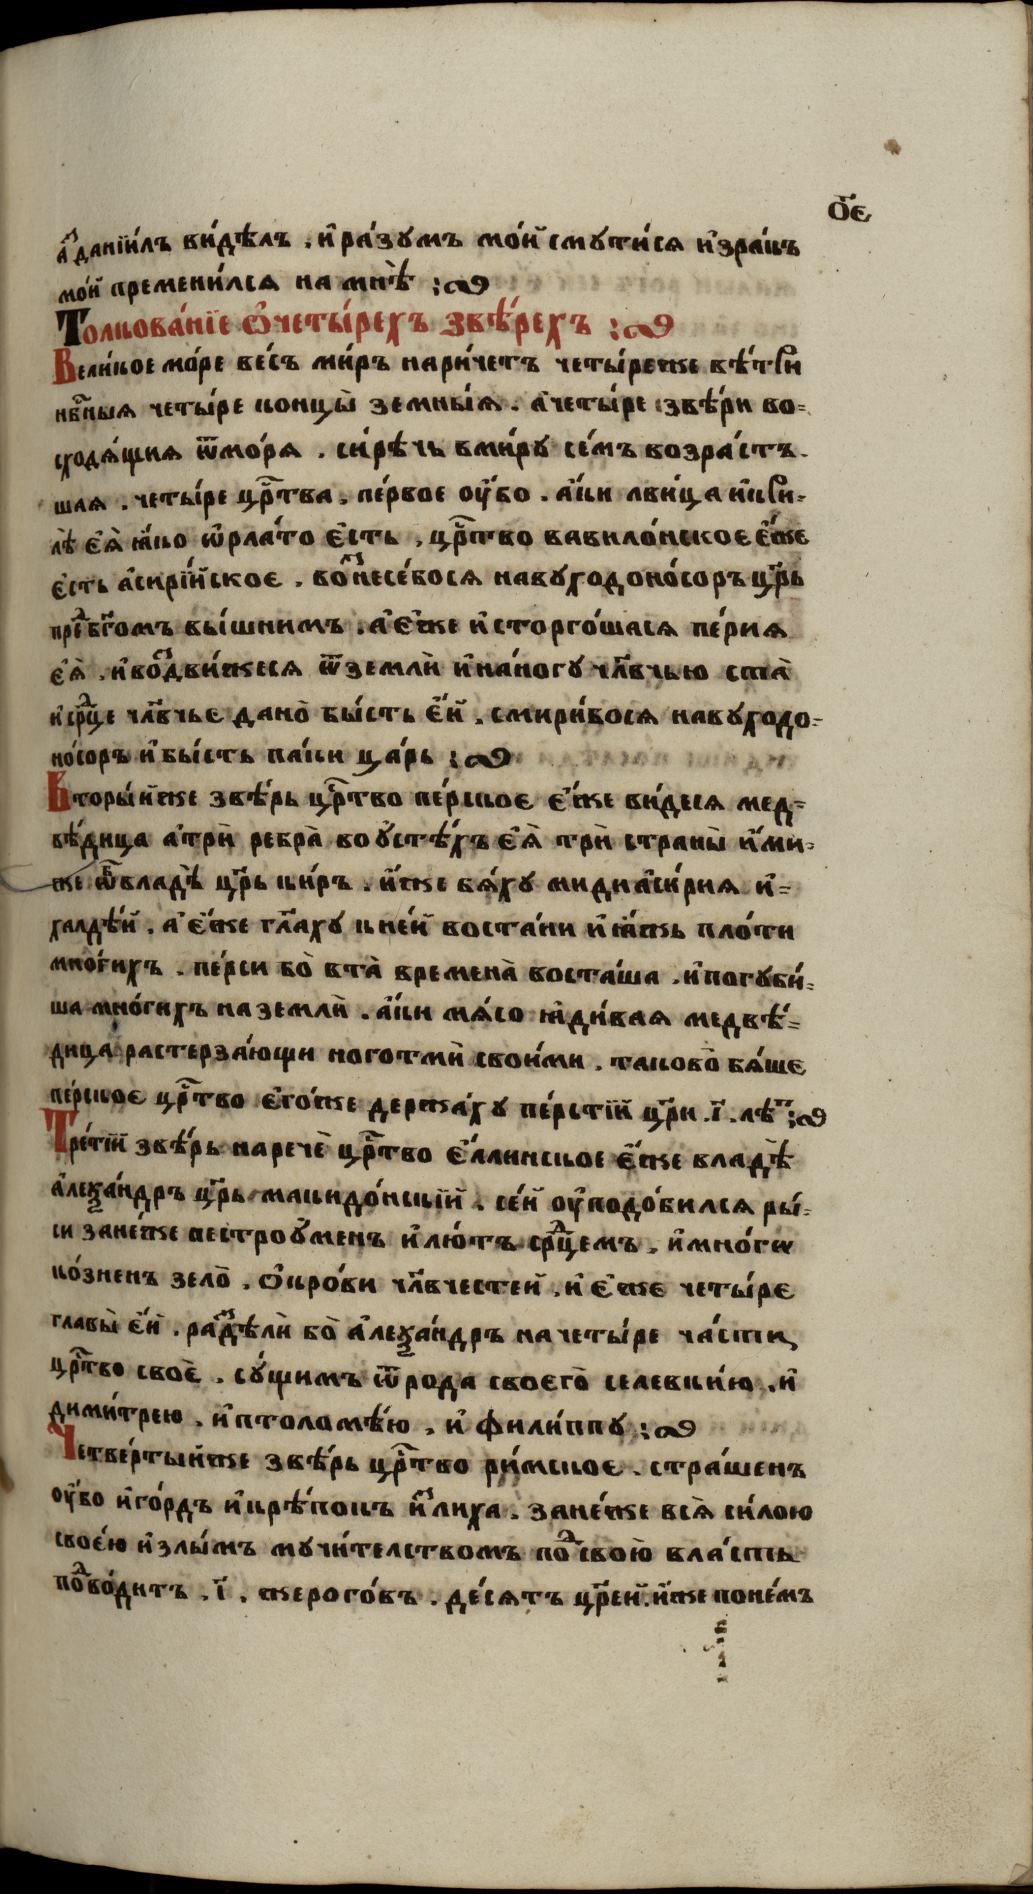 о҃е
а҆́зъ дани́илъ ви́дѣлъ . и҆ ра́зумъ мо́й смути́ся и҆ зра́къ
мо́й премени́лся на мнѣ̀ :
Толкова́нїе ѡ҆ четы́рехъ звѣ́рехъ :
Вели́кое мо́ре ве́сь ми́ръ нари́четъ четы́реже вѣ́тви
нб҃ныя четы́ре концы̀ земны́я . а҆ четы́ре звѣ́ри во=
сходя́щия ѿ мо́ря . си́рѣчь в ми́ру се́мъ возра́стъ-
шая . четы́ре црⷭ҇тва , пе́рвое оу҆́бо . а҆́ки льви́ца и҆ кри-
лѣ̀ є҆я̀ ꙗ҆́ко ѡ҆рла́то є҆́сть , црⷭ҇тво вавило́нское є҆́же
є҆́сть а҆сирі́йское . возⸯнесе́бося навуходоно́соръ цр҃ь
преⷣ бг҃омъ вы́шнимъ . а҆ є҆́же и҆сторго́шася пе́рия
є҆я̀ . и҆ воздви́жеся ѿ землѝ и҆ на́ногу чл҃вчью ста̀
и҆ срⷣце чл҃вчье дано̀ бы́сть є҆́й . смири́бося навуходо-
но́соръ и҆ бы́сть па́ки ца́рь :
Вторы́йже звѣ́рь црⷭ҇тво пе́рское є҆́же ви́деся мед=
вѣ́дица а҆ трѝ ребра̀ во у҆стѣ́хъ є҆я̀ трѝ страны̀ и҆́ми-
же ѡ҆бладѣ̀ цр҃ь ки́ръ . и҆́же бя́ху миди а҆си́рия и҆=
халдѣ́й . а҆ є҆́же гл҃аху к не́й воста́ни и҆ ꙗ҆́жь пло́ти
мно́гихъ . пе́рси бо̀ в та̀ времена̀ воста́ша . и҆ погуби́-
ша мно́гихъ на землѝ . а҆́ки мя́со ꙗ҆ди́вая медвѣ́=
дица растерза́ющи ноготмѝ свои́ми . таково̀ бя́ше
пе́рское црⷭ҇тво є҆го́же держа́ху пе́рстїй цр҃и . і҃ . лѣⷮ :
Тре́тїй звѣ́рь наречѐ црⷭ҇тво є҆́ллинское є҆́же владѣ̀
а҆леѯа́ндръ цр҃ь македо́нскїй . се́й оу҆подо́бился ры́-
си зане́же пестроу҆́менъ и҆ лю́тъ срⷣцемъ . и҆ мно́гѡ
ко́зненъ зело̀ . ѡ҆ кро́ви чл҃вчестей . и҆ є҆́же четы́ре
главы̀ є҆́й . раздѣлѝ бо̀ а҆леѯа́ндръ на четы́ре ча́сти
црⷭ҇тво своѐ . су́щимъ ѿ рода своего̀ селевки́ю . и҆
дими́трею . и҆ птоломѣ́ю . и҆ фили́ппу :
Четве́ртыйже звѣ́рь црⷭ҇тво ри́мское . стра́шенъ
оу҆́бо и҆ го́рдъ и҆ крѣ́покъ и҆злиха . зане́же вся̀ си́лою
свое́ю и҆ злы́мъ мучи́телствомъ поⷣ свою̀ вла́сть
поⷣво́дитъ . і҃ . же рого́въ . де́сятъ цр҃ей . и҆́же по не́мъ